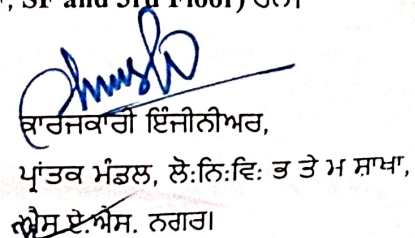 , SF and 3rd Floor) ਹਨ।
ਕਾਰਜਕਾਰੀ ਇੰਜੀਨੀਅਰ,
ਪ੍ਰਾਂਤਕ ਮੰਡਲ, ਲੋ:ਨਿ:ਵਿ: ਭ ਤੇ ਮ ਸ਼ਾਖਾ,
ਐਸ.ਏ.ਐਸ. ਨਗਰ।